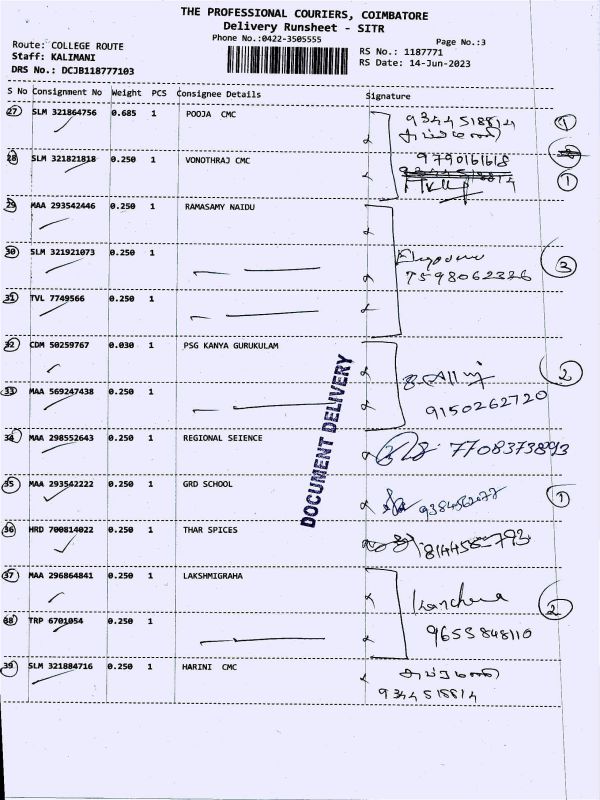 THE PROFESSIONAL COURIERS, COIMBATORE
Delivery Runsheet - SITR
Phone No.:0422-3505555
Page No.:3
Route: COLLEGE ROUTE
RS No.: 1187771
Staff: KALIMANI
RS Date: 14-Jun-2023
DRS No.: DCJB118777103
S No Consignment No Weight PCS Consignee Details Signature
27 SLM 321864756 0.685 1 POOJA CMC 9344518814 1
28 SLM 321821818 0.250 1 VONOTHRAJ CMC 9790161618 1
29 MAA 293542446 0.250 1 RAMASAMY NAIDU
30 SLM 321921073 0.250 1 7598062326 3
31 TVL 7749566 0.250 1
32 CDM 50259767 0.030 1 PSG KANYA GURUKULAM 2
33 MAA 569247438 0.250 1 9150262720
34 MAA 298552643 0.250 1 REGIONAL SEIENCE
35 MAA 293542222 0.250 1 GRD SCHOOL 1
36 HRD 700814022 0.250 1 THAR SPICES
37 MAA 296864841 0.250 1 LAKSHMIGRAHA Kanchana 2
38 TRP 6701054 0.250 1 9655848110
39 SLM 321884716 0.250 1 HARINI CMC
9344518814
DOCUMENT DELIVERY